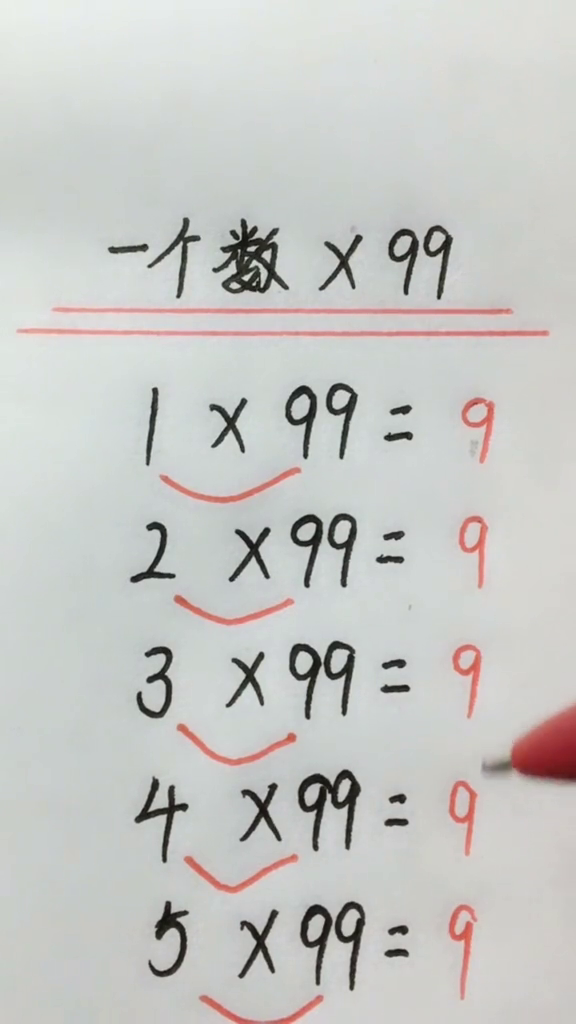 一个数 × 99
1 × 99 = 9
2 × 99 = 9
3 × 99 = 9
4 × 99 = 9
5 × 99 = 9